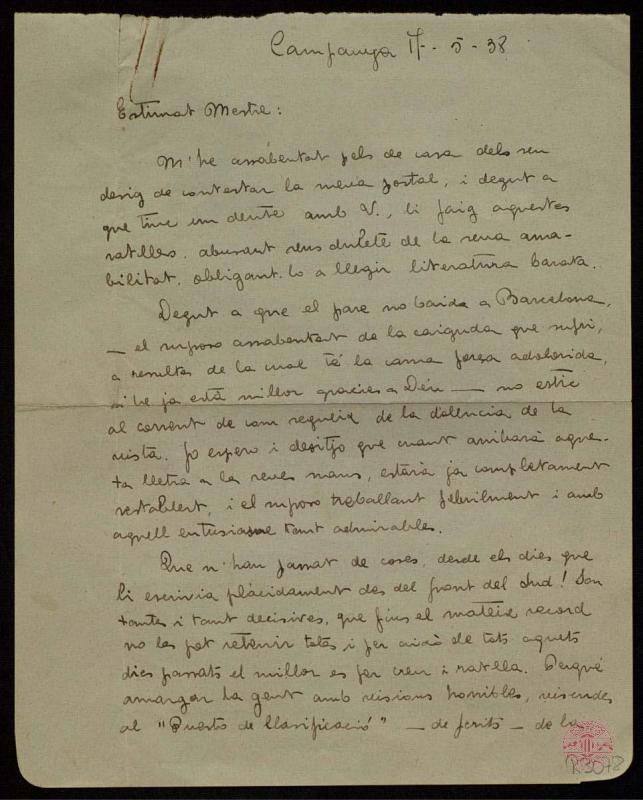 Campanya 17-5-38
Estimat Mestre:
M'he assabentat pels de casa dels seu
desig de contestar la meva postal, i degut a
que tinc un deute amb V., li faig aquestes
ratlles. abusant sens dubte de la seva ama-
bilitat, obligant-lo a llegir literatura barata.
Degut a que el pare no baida a Barcelona,
— el suposo assabentat de la caiguda que sufrí,
a resultes de la cual té la cama força adolorida,
si bé ja està millor gracies a Déu — no estic
al corrent de com segueix de la dolencia de la
vista. Jo espero i desitjo que cuant arribarà aques-
ta lletra a la seves mans, estarà ja completament
restablert, i el suposo treballant febrilment i amb
aquell entusiasme tant admirables.
Que n'han passat de coses, desde els dies que
li escrivia plàcidament des del front del Sud! Son
tantes i tant decisives, que fins el mateix record
no les pot retenir totes i per això de tots aquets
dies passats el millor es fer creu i ratlla. Perqué
amargar la gent amb visions horribles, viscudes
al "Puesto de Clasificació" — de ferits — de la
R.3072